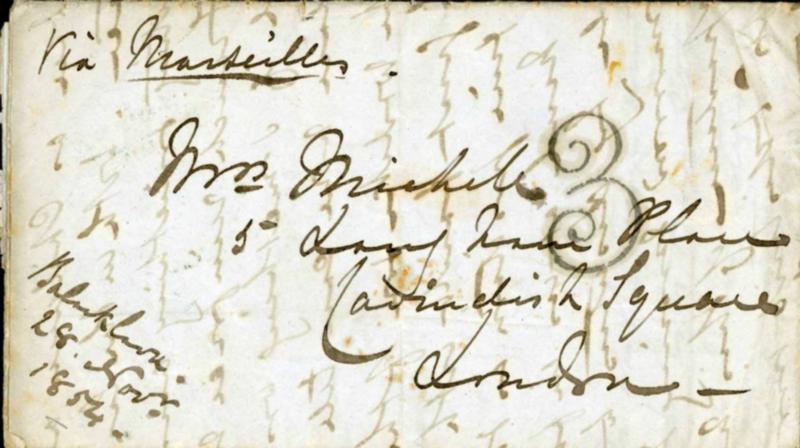 Via Marseilles.
Mrs Michell
3
5 Langham Place
Cavindish Square
London
Balaklava.
28 Nov
1854.